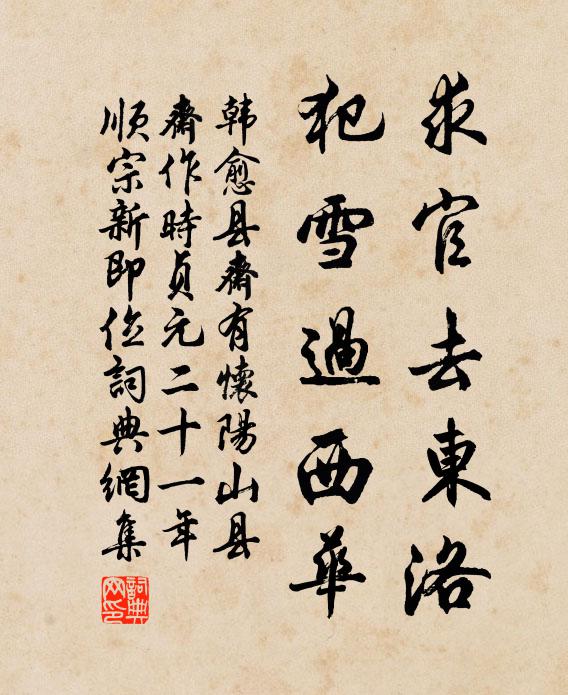 求官去東洛
犯雪過西華
韩愈县齋有懷陽山县
齋作時貞元二十一年
順宗新即位詞典網集
詞典网印